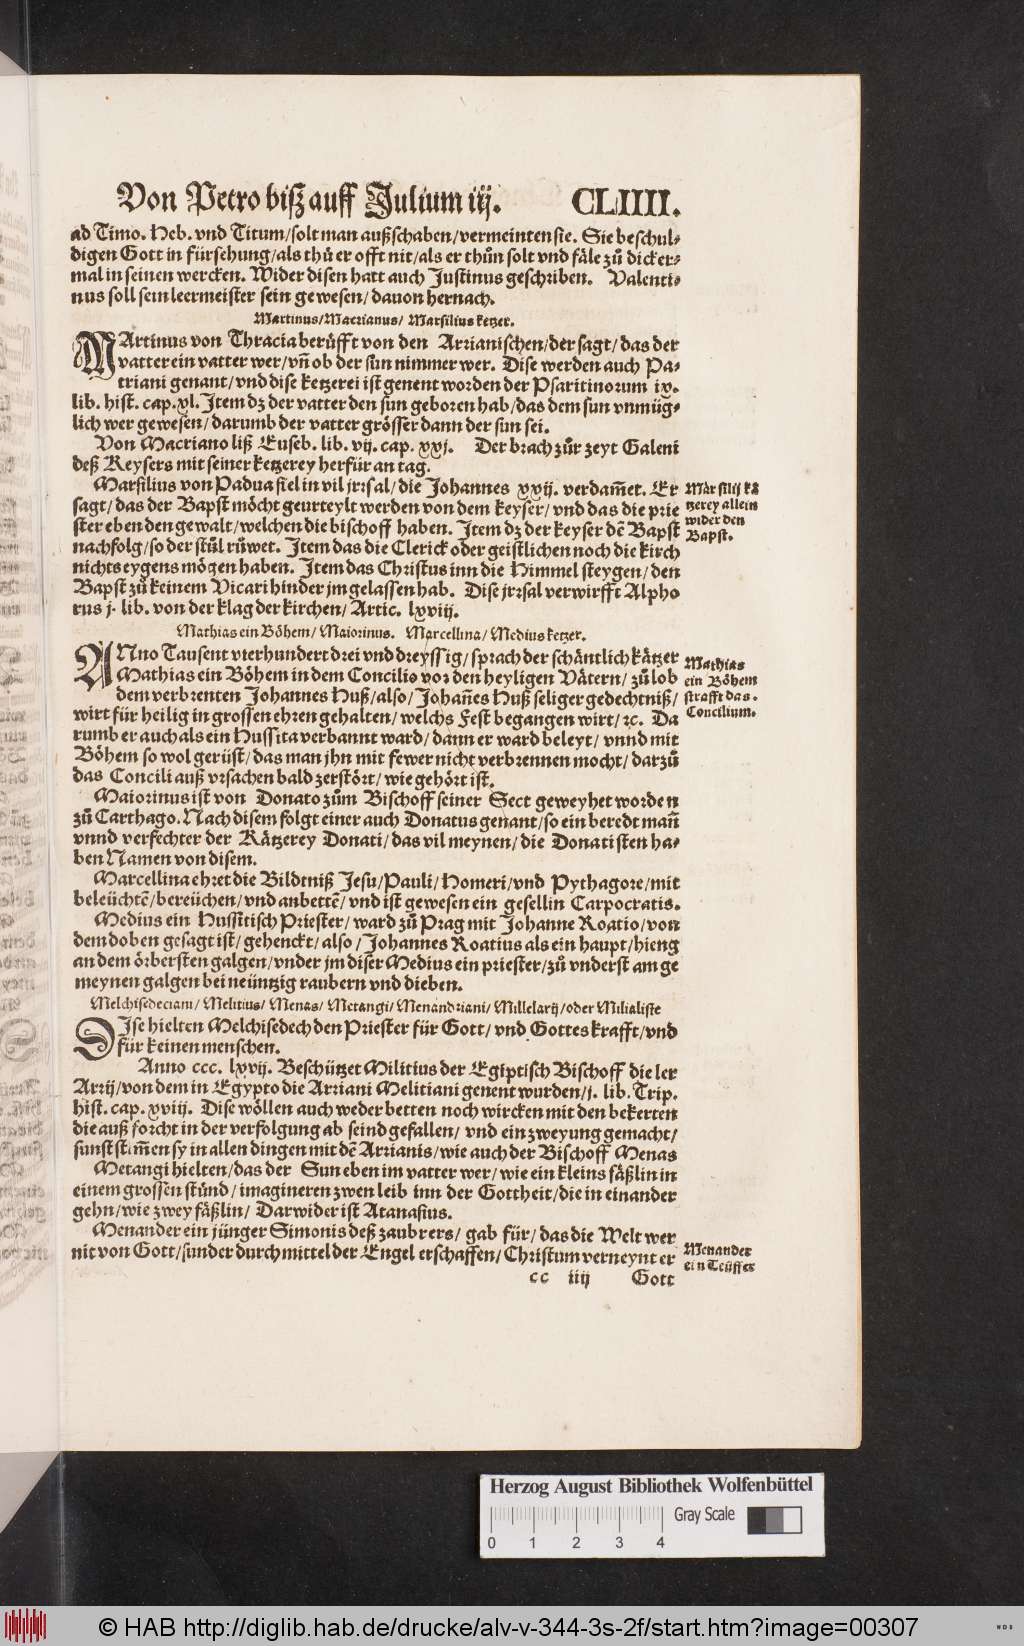 Von Petro biß auff Julium iij. CLIIII.
ad Timo. Heb. vnd Titum/solt man außschaben/vermeinten sie. Sie beschul⸗
digen Gott in fürsehung/als thů er offt nit/als er thůn solt vnd fäle zů dick er⸗
mal in seinen wercken. Wider disen hatt auch Justinus geschriben. Valenti⸗
nus soll sein leermeister sein gewesen/dauon hernach.
Martinus/Macrianus/ Marsilius ketzer.
MArtinus von Thracia berüfft von den Arrianischen/der sagt/das der
vatter ein vatter wer/vn̄ ob der sun nimmer wer. Dise werden auch Pa⸗
triani genant/vnd dise ketzerei ist genent worden der Psaritinorum ix.
lib. hist. cap. xl. Item dz der vatter den sun geboren hab/das dem sun vnmüg⸗
lich wer gewesen/darumb der vatter grösser dann der sun sei.
Von Macriano liß Euseb. lib. vij. cap. xxj. Der brach zůr zeyt Galeni
deß Keysers mit seiner ketzerey herfür an tag.
Marsilius von Padua fiel in vil jrrsal/die Johannes xxij. verdam̄et. Er
sagt/das der Bapst möcht geurteylt werden von dem keyser/vnd das die prie
ster eben den gewalt/welchen die bischoff haben. Item dz der keyser dē Bapst
nachfolg/so der stůl růwet. Item das die Clerick oder geistlichen noch die kirch
nichts eygens mögen haben. Item das Christus inn die Himmel steygen/den
Bapst zů keinem Vicari hinder jm gelassen hab. Dise jrrsal verwirfft Alpho
rus j. lib. von der klag der kirchen/Artic. lxviij.
Marsilij kä
tzerey allein
wider den
Bapst.
Mathias ein Böhem/Maiorinus. Marcellina/Medius ketzer.
ANno Tausent vierhundert drei vnd dreyssig/sprach der schäntlich kätzer
Mathias ein Böhem in dem Concilio vor den heyligen Vätern/zů lob
dem verbrenten Johannes Huß/also/Johan̄es Huß seliger gedechtniß/
wirt für heilig in grossen ehren gehalten/welchs Fest begangen wirt/ꝛc. Da
rumb er auch als ein Hussita verbannt ward/dann er ward beleyt/vnnd mit
Böhem so wol gerüst/das man jhn mit fewer nicht verbrennen mocht/darzů
das Concili auß vrsachen bald zerstört/wie gehört ist.
Mathias
ein Böhem
strafft das
Concilium.
Maiorinus ist von Donato zům Bischoff seiner Sect geweyhet worden
zů Carthago. Nach disem folgt einer auch Donatus genant/so ein beredt man̄
vnnd verfechter der Kätzerey Donati/das vil meynen/die Donatisten ha⸗
ben Namen von disem.
Marcellina ehret die Bildtniß Jesu/Pauli/Homeri/vnd Pythagore/mit
beleüchtē/bereüchen/vnd anbettē/vnd ist gewesen ein gesellin Carpocratis.
Medius ein Hussitisch Priester/ward zů Prag mit Johanne Roatio/von
dem doben gesagt ist/gehenckt/also/Johannes Roatius als ein haupt/hieng
an dem örbersten galgen/vnder jm diser Medius ein priester/zů vnderst am ge
meynen galgen bei neüntzig raubern vnd dieben.
Melchisedeciani/Melitius/Menas/Metangi/Menandriani/Millelarij/oder Milialiste
DIse hielten Melchisedech den Priester für Gott/vnd Gottes krafft/vnd
für keinen menschen.
Anno ccc. lxvij. Beschützet Militius der Egiptisch Bischoff die ler
Arrij/von dem in Egypto die Arriani Melitiani genent wurden/j. lib. Trip.
hist. cap. xviij. Dise wöllen auch weder betten noch wircken mit den bekerten
die auß forcht in der verfolgung ab seind gefallen/vnd ein zweyung gemacht/
sunst stim̄en sy in allen dingen mit dē Arrianis/wie auch der Bischoff Menas
Metangi hielten/das der Sun eben im vatter wer/wie ein kleins fäßlin in
einem grossen stůnd/imagineren zwen leib inn der Gottheit/die in einander
gehn/wie zwey fäßlin/Darwider ist Atanasius.
Menander ein jünger Simonis deß zaubrers/gab für/das die Welt wer
nit von Gott/sunder durch mittel der Engel erschaffen/Christum verneynt er
Menander
ein Teüffer
cc iiij Gott
Herzog August Bibliothek Wolfenbüttel
Gray Scale
0 1 2 3 4
© HAB http://diglib.hab.de/drucke/alv-v-344-3s-2f/start.htm?image=00307
WDB